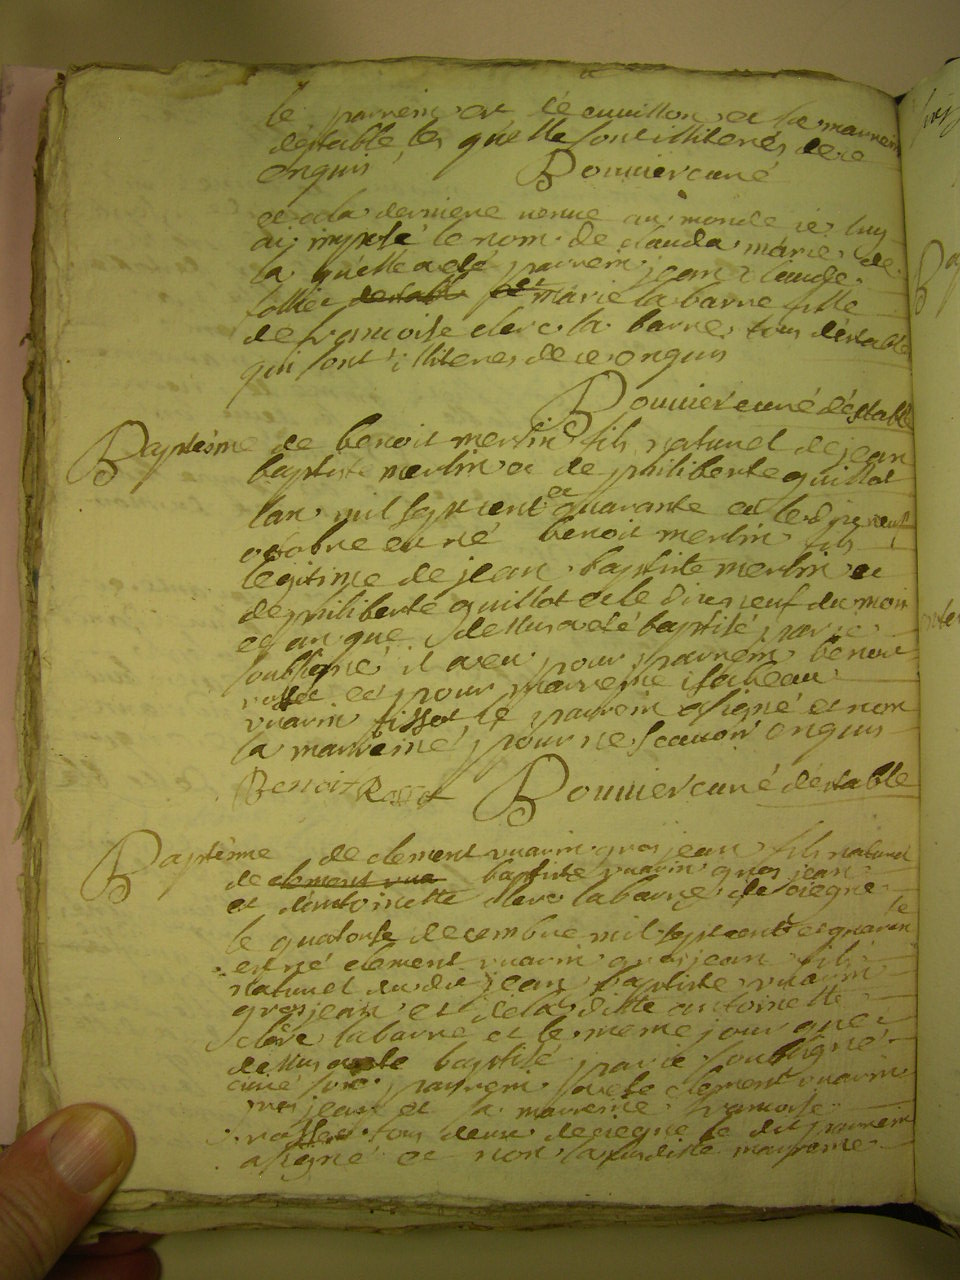 le parrein est de cuuillon et la marrein
destable les quelle sont illiteres de ce
enquis Bouuier curé
et a la derniere venue au monde ie luy
ai imposé le nom de clauda marie de
la quelle a eté parrein jean claude
follie destable et marie la barre fille
de francoise clerc la barre tous destable
qui sont illiteres de ce enquis
Bouuier curé déstable
Baptésme de benoit merlin fils naturel de jean
baptiste merlin et de philiberte quillot
lan mil sept cent et quarante et le dixneuf
octobre est né benoit merlin fils
legitime de jean baptiste merlin et
de philiberte quillot et le dixneuf du mois
et an que dessus a eté baptisé par ie
soubsigné il a eu pour parrein benoit
rosset et pour marreine isabeau
vuarin fisset le parrein a signé et non
la marreine pour ne scauoir enquis
Benoit Rosset Bouuier curé déstable
Baptéme de clement vuarin gros jean fils naturel
de clement vua baptiste vuarin gros jean
et dantoinette clerc labarre de ciegne
le quatorse decembre mil sept cent et quarante
est né clement vuarin gros jean fils
naturel du dit jean baptiste vuarin
gros jean et de la ditte antoinette
clerc labarre et le meme jour que
dessus a eté baptisé par ie soubsigné
curé son parrein a eté clement vuarin
gros jean et la marreine francoise
rosset tous deux de ciegne le dit parrein
a signé et non la susditte marreine